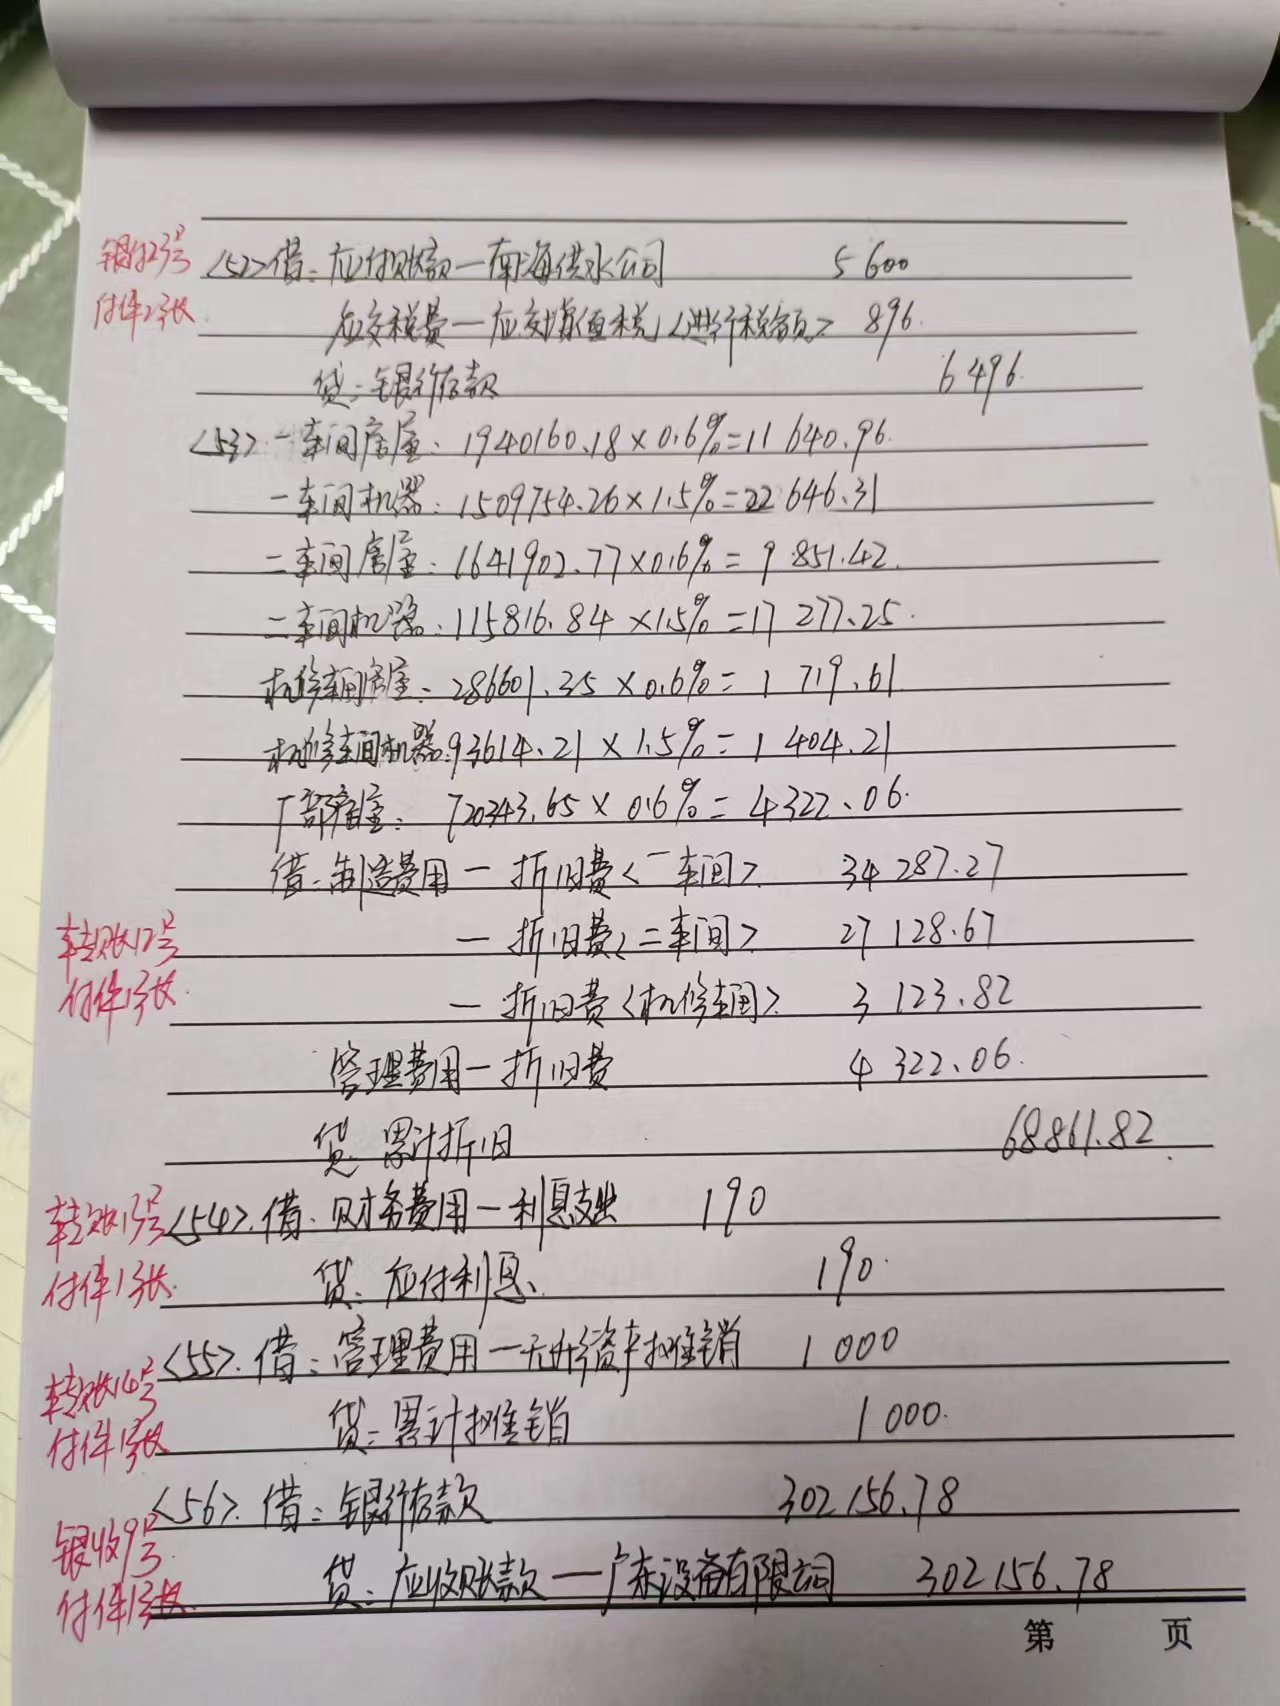 银付27号 <52>借：应付账款—南海供水公司 5600
付件2张 应交税费—应交增值税<进行税额> 896.
贷：银行存款 6496.
<53>.一车间房屋：1940160.18×0.6%=11640.96.
一车间机器：1509754.26×1.5%=22646.31
二车间房屋：1641902.77×0.6%=9851.42.
二车间机器：115816.84×1.5%=17277.25.
机修车间房屋：286601.35×0.6%=1719.61
机修车间机器：93614.21×1.5%=1404.21
厂部房屋：720343.65×0.6%=4322.06.
借：制造费用—折旧费<一车间> 34287.27
转账12号 —折旧费<二车间> 27128.67
付件1张. —折旧费<机修车间> 3123.82
管理费用—折旧费 4322.06.
贷：累计折旧 68861.82
转账13号 <54>.借：财务费用—利息支出 190
付件1张. 贷：应付利息 190.
<55>.借：管理费用—无形资产摊销 1000
转账14号
付件1张 贷：累计摊销 1000.
<56>.借：银行存款 302156.78
银收9号
付件1张 贷：应收账款—广东设备有限公司 302156.78
第 页